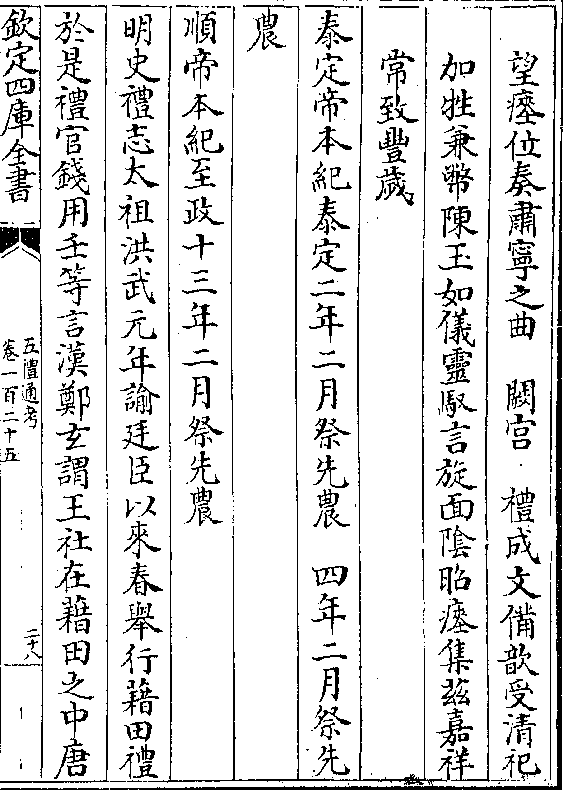 望瘞位奏肅寧之曲　闕宫　禮成文備歆受清祀
加牲兼幣陳玉如儀靈馭言旋面陰昭瘞集茲嘉祥
常致豐歲
泰定帝本紀泰定二年二月祭先農　四年二月祭先
農
順帝本紀至政十三年二月祭先農
明史禮志太祖洪武元年諭廷臣以來春舉行藉田禮
於是禮官錢用壬等言漢鄭玄謂王社在藉田之中唐
欽定四庫全書
五禮通考
卷一百二十五
二十八